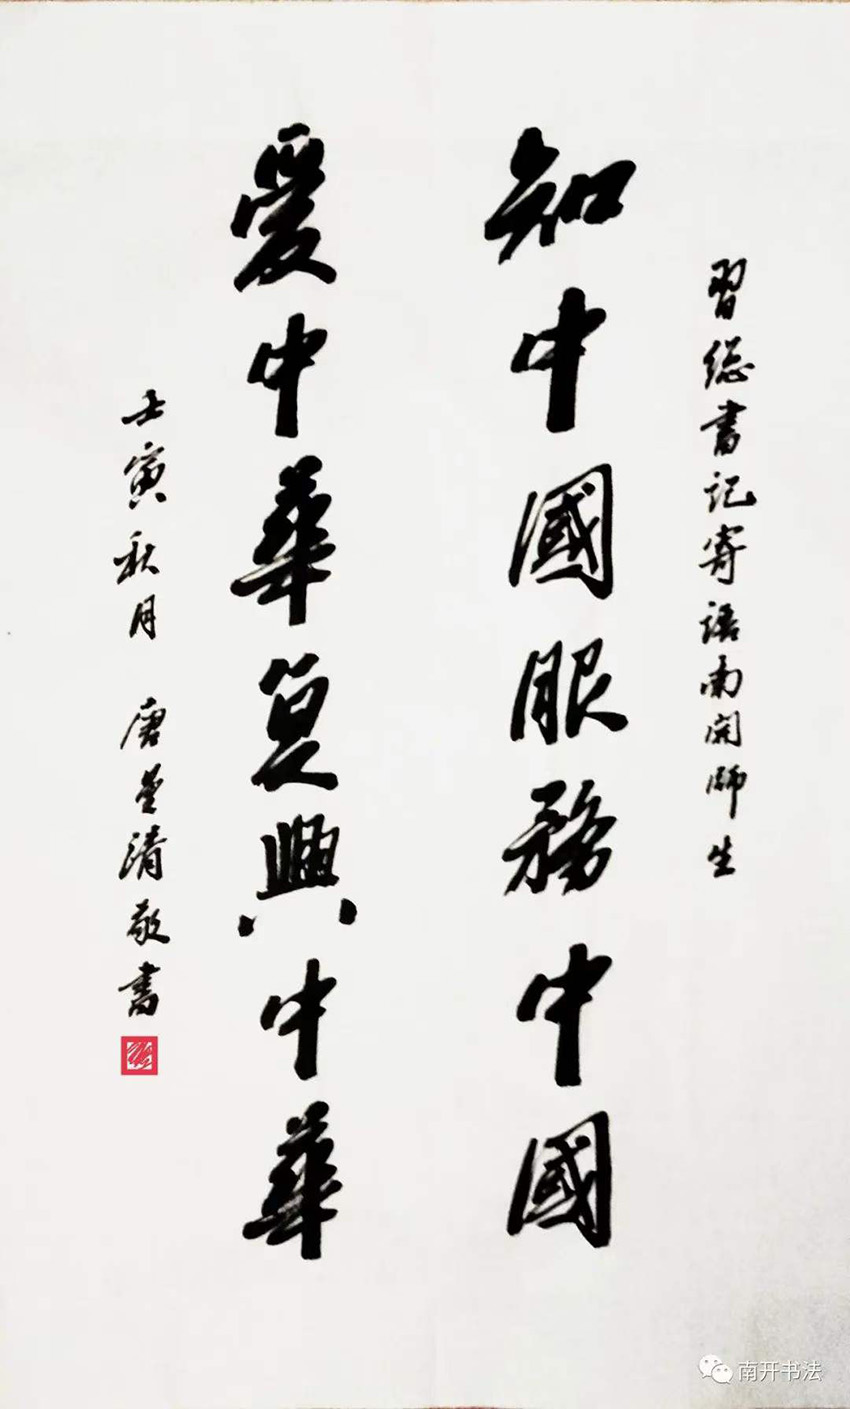 習総書記寄语南開師生
知中國服務中國
愛中華复興中華
壬寅秋月 唐星清敬書
南开书法